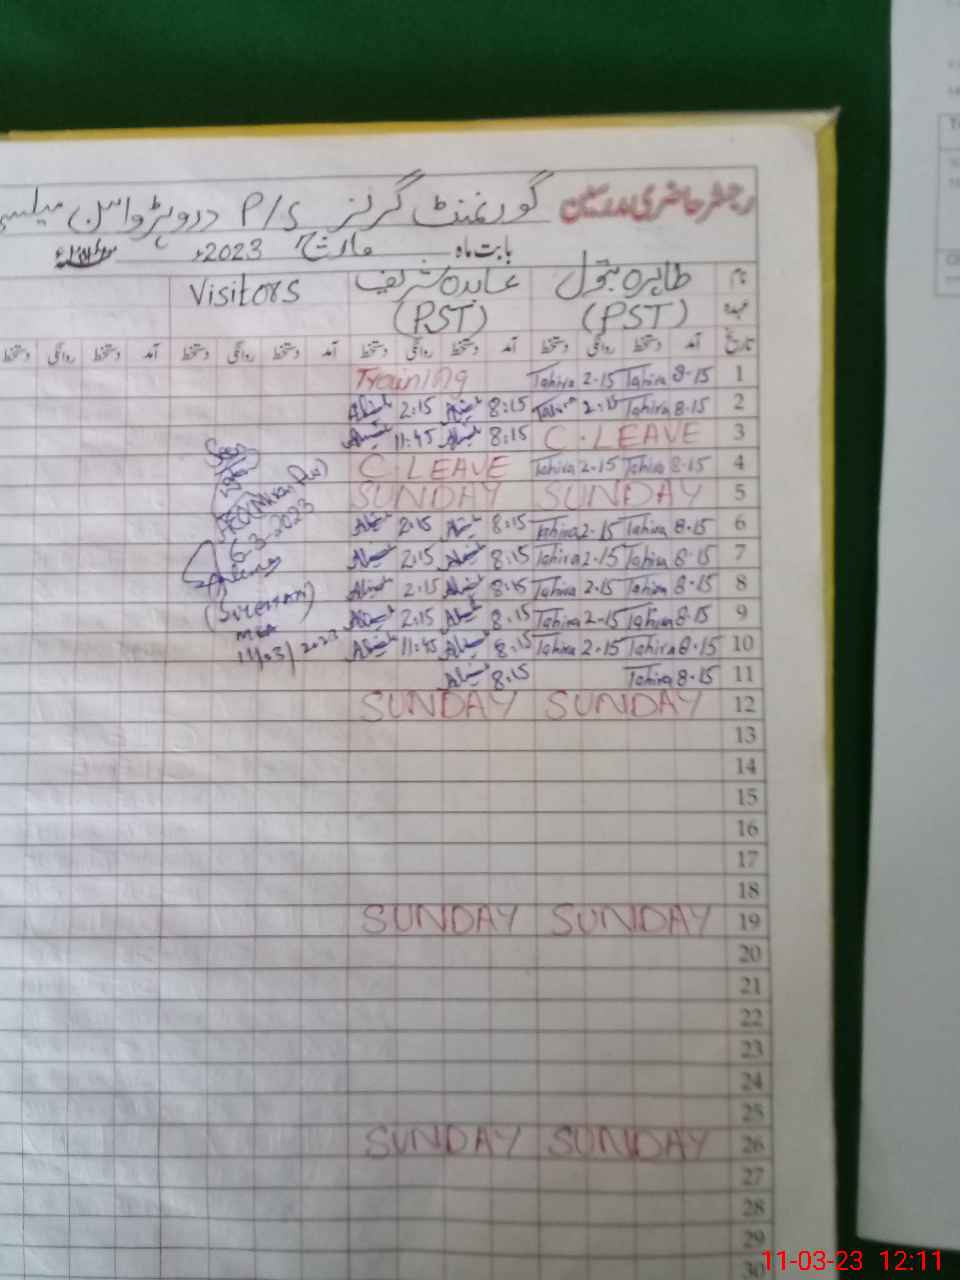 رجسٹر حاضری مدرسین گورنمنٹ گرلز P/S
بابت ماہ مارچ 2023ء
نام طاہرہ بتول عابدہ شریف Visitors
عہدہ (PST) (PST)
تاریخ آمد دستخط روانگی دستخط آمد دستخط روانگی دستخط آمد دستخط روانگی دستخط آمد دستخط روانگی دستخط
1 8-15 Tahira 2-15 Tahira Training
2 8-15 Tahira 2-15 Tahira 8:15 2:15
3 C.LEAVE 8:15 11:45
4 8-15 Tahira 2-15 Tahira C.LEAVE
5 SUNDAY SUNDAY
6 8-15 Tahira 2-15 Tahira 8:15 2:15 6-3-2023
7 8-15 Tahira 2-15 Tahira 8:15 2:15
8 8-15 Tahira 2-15 Tahira 8:15 2:15
9 8-15 Tahira 2-15 Tahira 8:15 2:15
10 8-15 Tahira 2-15 Tahira 8:15 11:45 11/03/2023
11 8-15 Tahira 8:15
12 SUNDAY SUNDAY
13
14
15
16
17
18
19 SUNDAY SUNDAY
20
21
22
23
24
25
26 SUNDAY SUNDAY
27
28
29
30
11-03-23 12:11